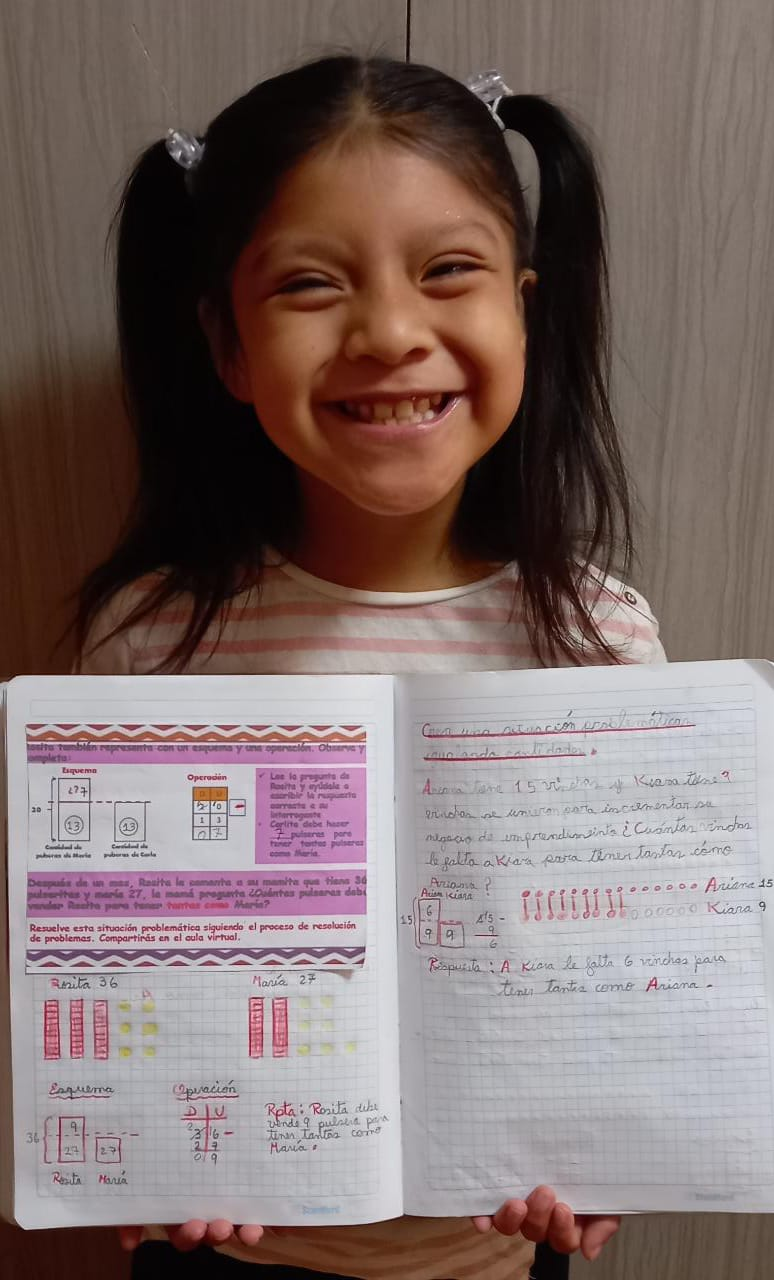 Rosita también representa con un esquema y una operación. Observa y
completa:
Esquema
20
13
13
Cantidad de
pulseras de María
Cantidad de
pulseras de Carla
Operación
D U
2 10
1 3
0 7
Lee la pregunta de
Rosita y ayúdala a
escribir la respuesta
correcta a su
interrogante
Carlita debe hacer
7 pulseras para
tener tantas pulseras
como María.
Después de un mes, Rosita le comenta a su mamita que tiene 36
pulseritas y maría 27, la mamá pregunta ¿Cuántas pulseras debe
vender Rosita para tener tantas como María?
Resuelve esta situación problemática siguiendo el proceso de resolución
de problemas. Compartirás en el aula virtual.
Rosita 36
María 27
Esquema
36
9
27
27
Rosita María
Operación
D U
2
3 16 -
2 7
0 9
Rpta: Rosita debe
vende 9 pulsera para
tener tantas como
María.
Standford
Crea una situación problemática
igualando cantidades.
Ariana tiene 15 vinchas y Kiara tiene 9
vinchas se unieron para incrementar su
negocio de emprendimiento ¿Cuántas vinchas
le falta a Kiara para tener tantas cómo
Ariana?
Kiara
15
6
9
9
15 -
9
6
Ariana 15
Kiara 9
Respuesta: A Kiara le falta 6 vinchas para
tener tantas como Ariana.
Standford